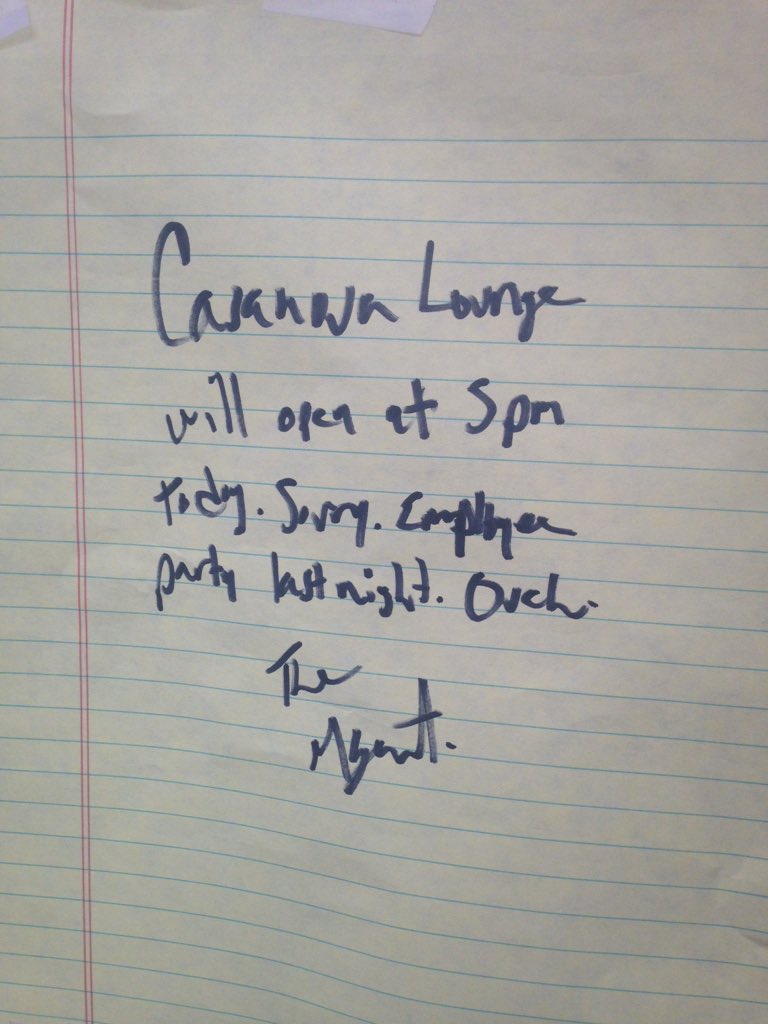 Casanova Lounge
will open at 5pm
today. Sorry. Employee
party last night. Ouch.
The
Mgmt.